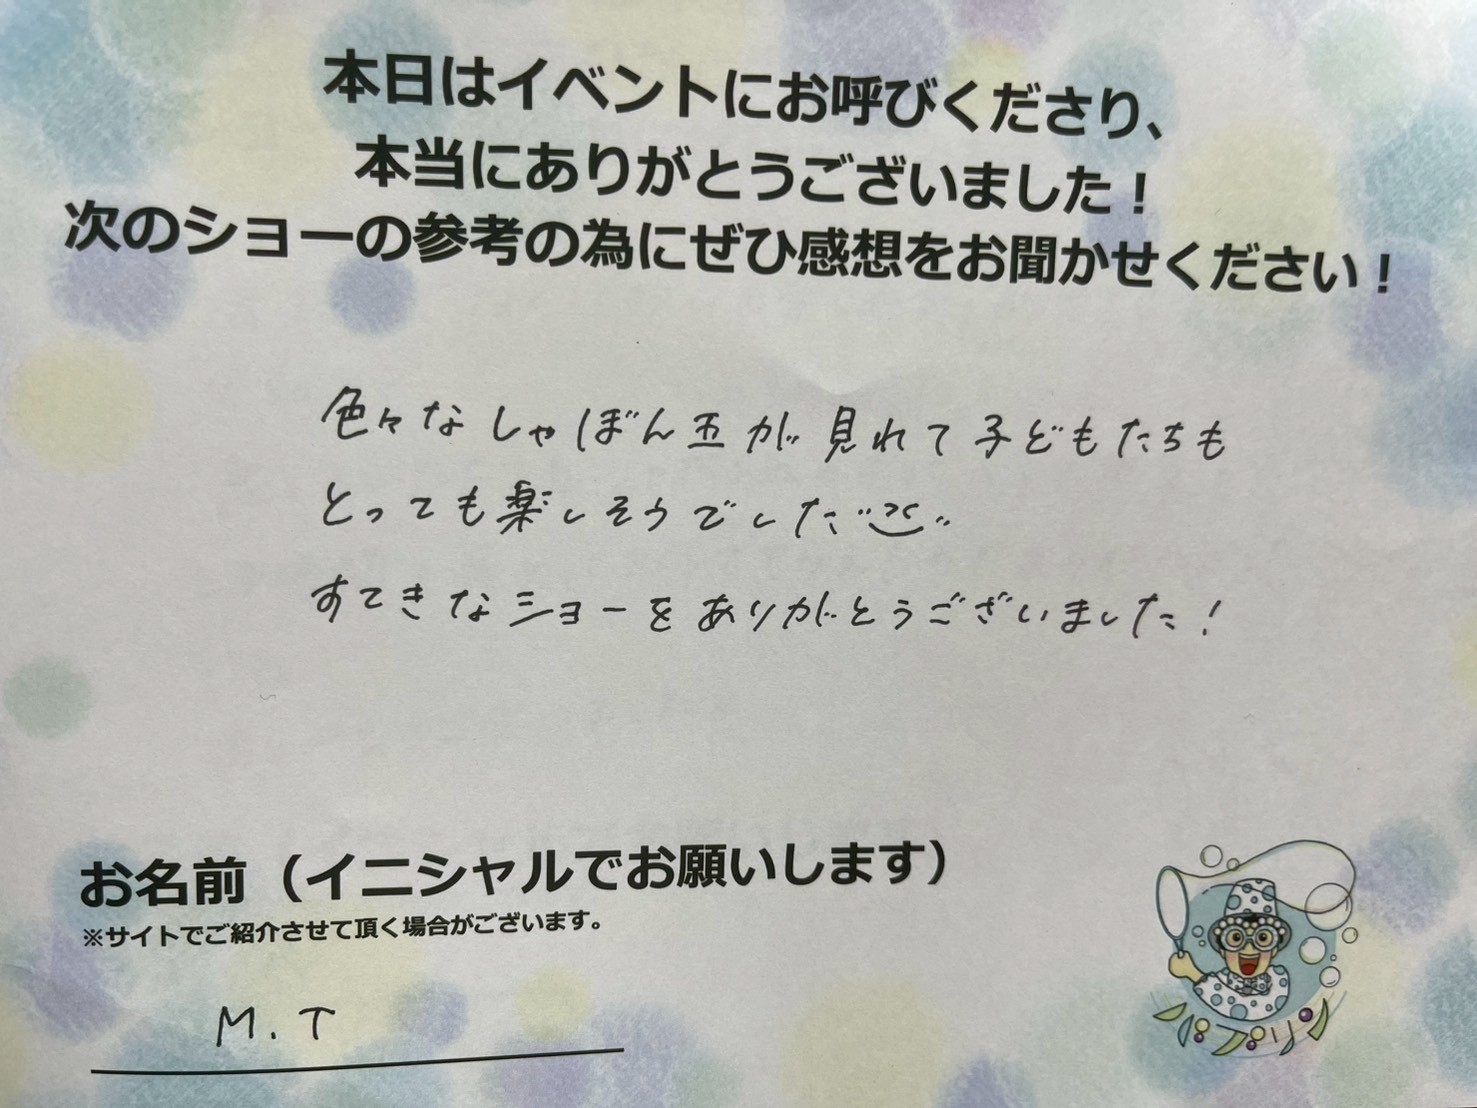 本日はイベントにお呼びくださり、
本当にありがとうございました！
次のショーの参考の為にぜひ感想をお聞かせください！
色々なしゃぼん玉が見れて子どもたちも
とっても楽しそうでした
すてきなショーをありがとうございました！
お名前（イニシャルでお願いします）
※サイトでご紹介させて頂く場合がございます。
M.T